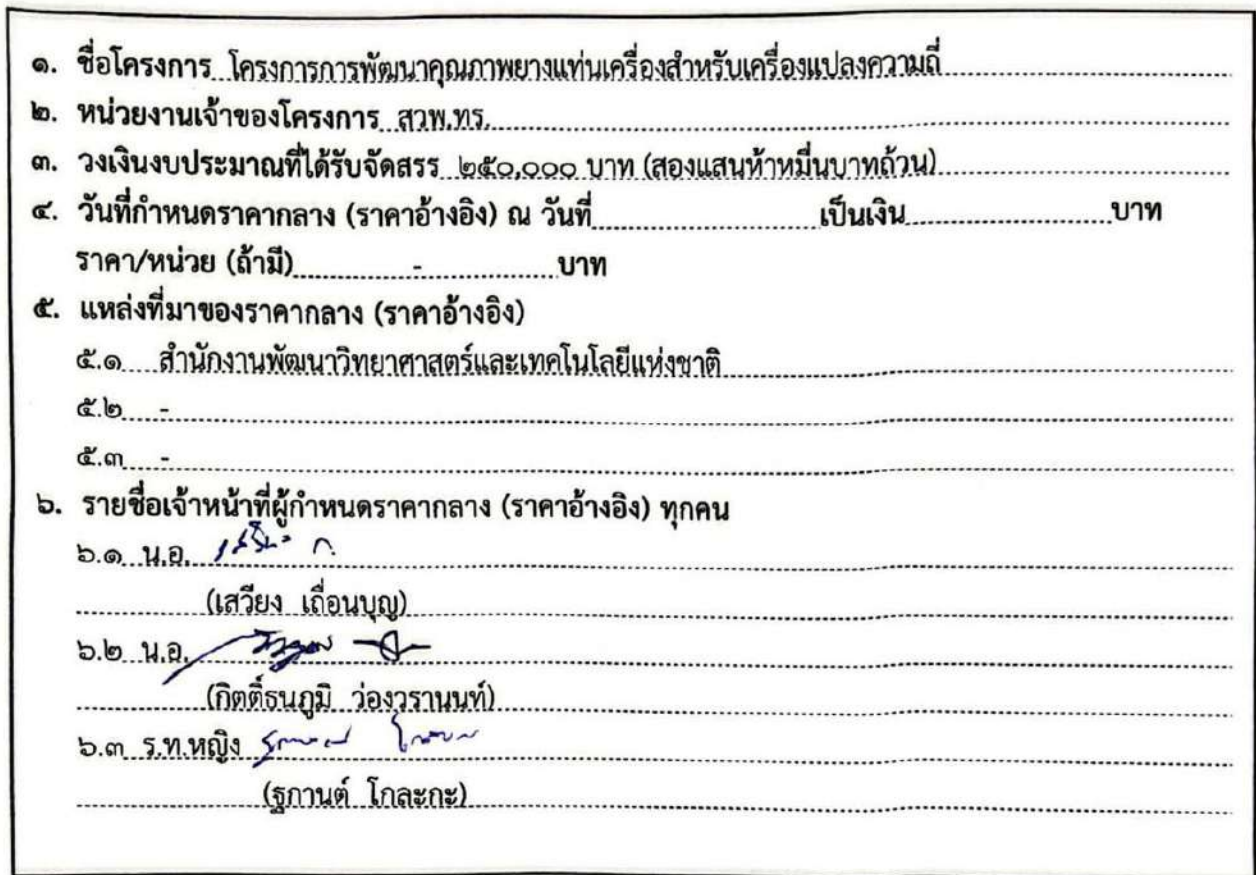 ๑. ชื่อโครงการ โครงการการพัฒนาคุณภาพยางแท่นเครื่องสำหรับเครื่องแปลงความถี่
๒. หน่วยงานเจ้าของโครงการ สวพ.ทร.
๓. วงเงินงบประมาณที่ได้รับจัดสรร ๒๕๐,๐๐๐ บาท (สองแสนห้าหมื่นบาทถ้วน)
๔. วันที่กำหนดราคากลาง (ราคาอ้างอิง) ณ วันที่ เป็นเงิน บาท
ราคา/หน่วย (ถ้ามี) - บาท
๕. แหล่งที่มาของราคากลาง (ราคาอ้างอิง)
๕.๑ สำนักงานพัฒนาวิทยาศาสตร์และเทคโนโลยีแห่งชาติ
๕.๒ -
๕.๓ -
๖. รายชื่อเจ้าหน้าที่ผู้กำหนดราคากลาง (ราคาอ้างอิง) ทุกคน
๖.๑ น.อ.
(เสวียง เถื่อนบุญ)
๖.๒ น.อ.
(กิตติ์ธนภูมิ ว่องวรานนท์)
๖.๓ ร.ท.หญิง
(ฐกานต์ โกละกะ)